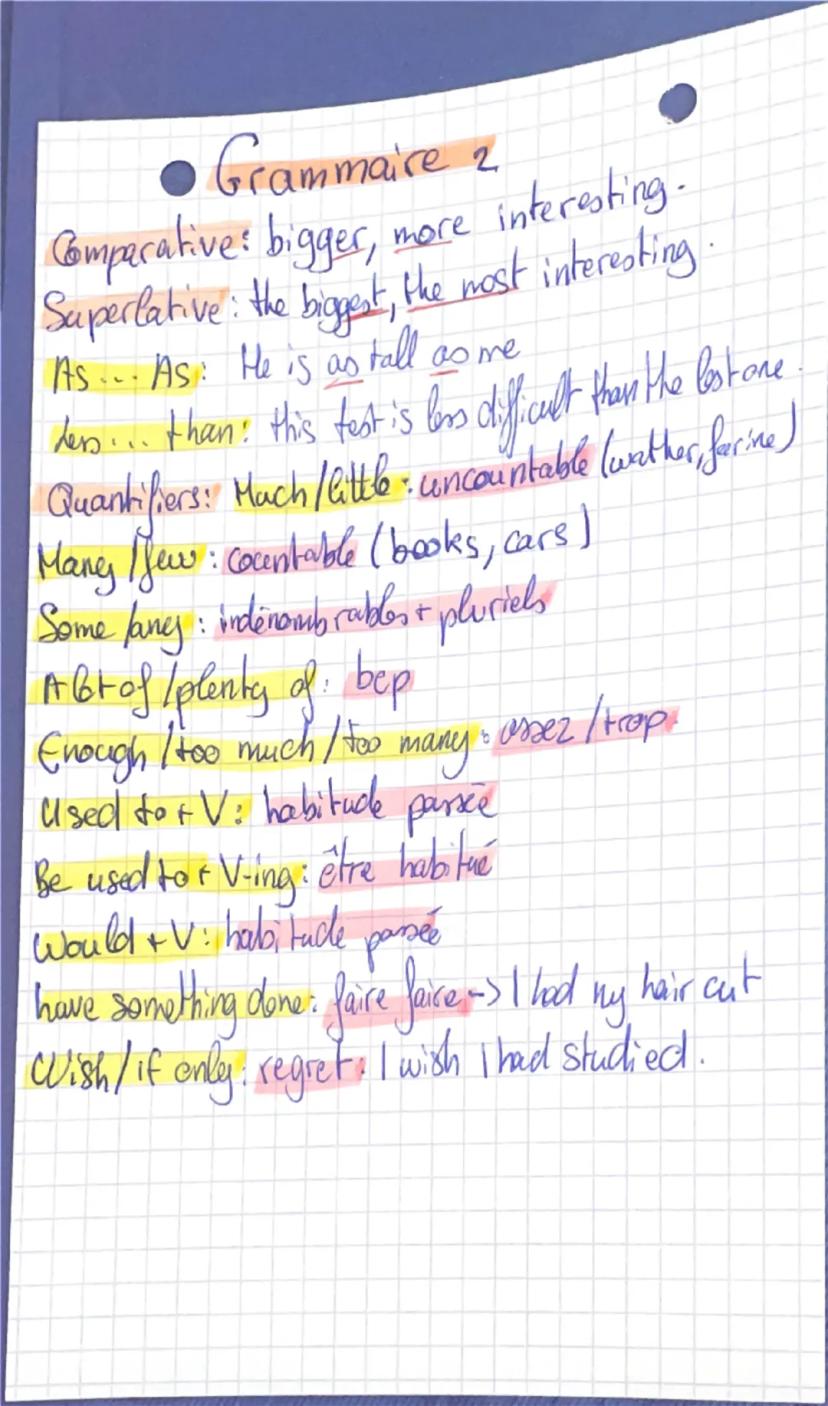 Grammaire 2
Comparative: bigger, more interesting.
Superlative: the biggest, the most interesting.
As... As: He is as tall as me
Less... than: this test is less difficult than the last one.
Quantifiers: Much/little: uncountable (wather, farine)
Many/few: countable (books, cars)
Some/any: indénombrables + pluriels
A lot of/plenty of: bcp
Enough/too much/too many: assez/trop.
Used to + V: habitude passée
Be used to + V-ing: être habitué
Would + V: habitude passée
have something done: faire faire -> I had my hair cut
Wish/if only: regret: I wish I had studied.